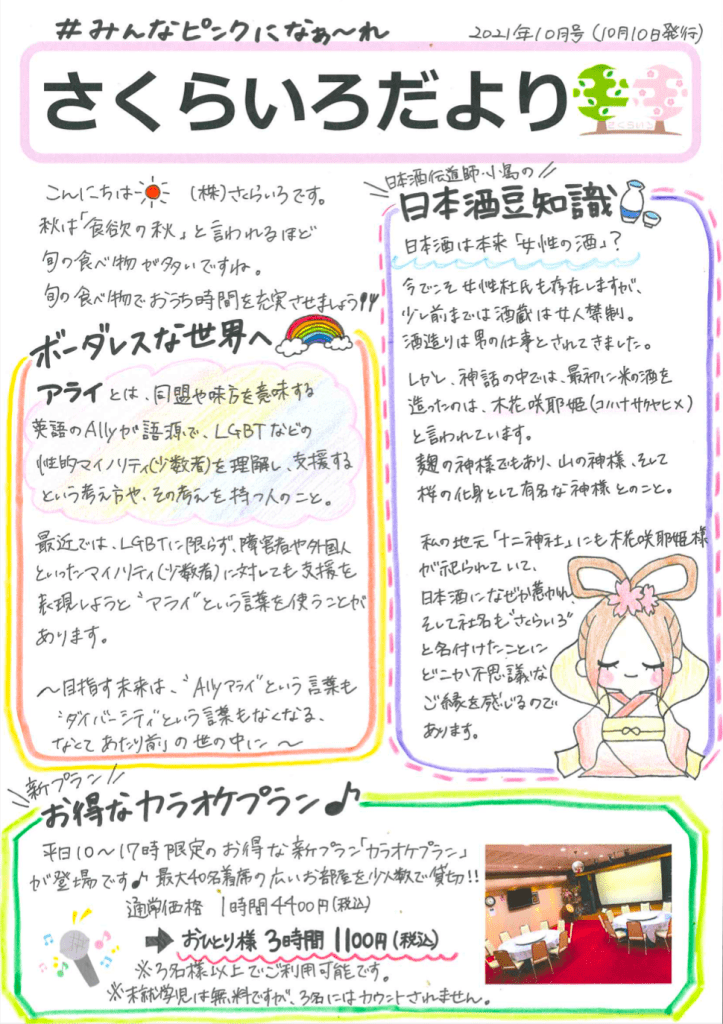 #みんなピンクになぁ〜れ
2021年10月号(10月10日発行)
さくらいろだより
さくらいろ
こんにちは (株)さくらいろです。
秋は「食欲の秋」と言われるほど
旬の食べ物が多いですね。
旬の食べ物でおうち時間を充実させましょう
ボーダレスな世界へ
アライとは、同盟や味方を意味する
英語のAllyが語源で、LGBTなどの
性的マイノリティ(少数者)を理解し、支援する
という考え方や、その考えを持つ人のこと。
最近では、LGBTに限らず、障害者や外国人
といったマイノリティ(少数者)に対しても支援を
表現しようと"アライ"という言葉を使うことが
あります。
〜目指す未来は、"Allyアライ"という言葉も
"ダイバーシティ"という言葉もなくなる、
なくてあたり前"の世の中に〜
日本酒伝道師・小島の
日本酒豆知識
日本酒は本来「女性の酒」?
今でこそ女性杜氏も存在しますが、
少し前までは酒蔵は女人禁制。
酒造りは男の仕事とされてきました。
しかし、神話の中では、最初に米の酒を
造ったのは、木花咲耶姫(コノハナサクヤヒメ)
と言われています。
麹の神様でもあり、山の神様、そして
桜の化身として有名な神様とのこと。
私の地元「十二神社」にも木花咲耶姫様
が祀られていて、
日本酒になぜか惹かれ、
そして社名も"さくらいろ"
と名付けたことに
どこか不思議な
ご縁を感じるので
あります。
新プラン
お得なカラオケプラン♪
平日10〜17時限定のお得な新プラン「カラオケプラン」
が登場です♪ 最大40名着席の広いお部屋を少人数で貸切!!
通常価格 1時間4400円(税込)
➡ おひとり様 3時間 1100円(税込)
※3名様以上でご利用可能です。
※未就学児は無料ですが、3名にはカウントされません。